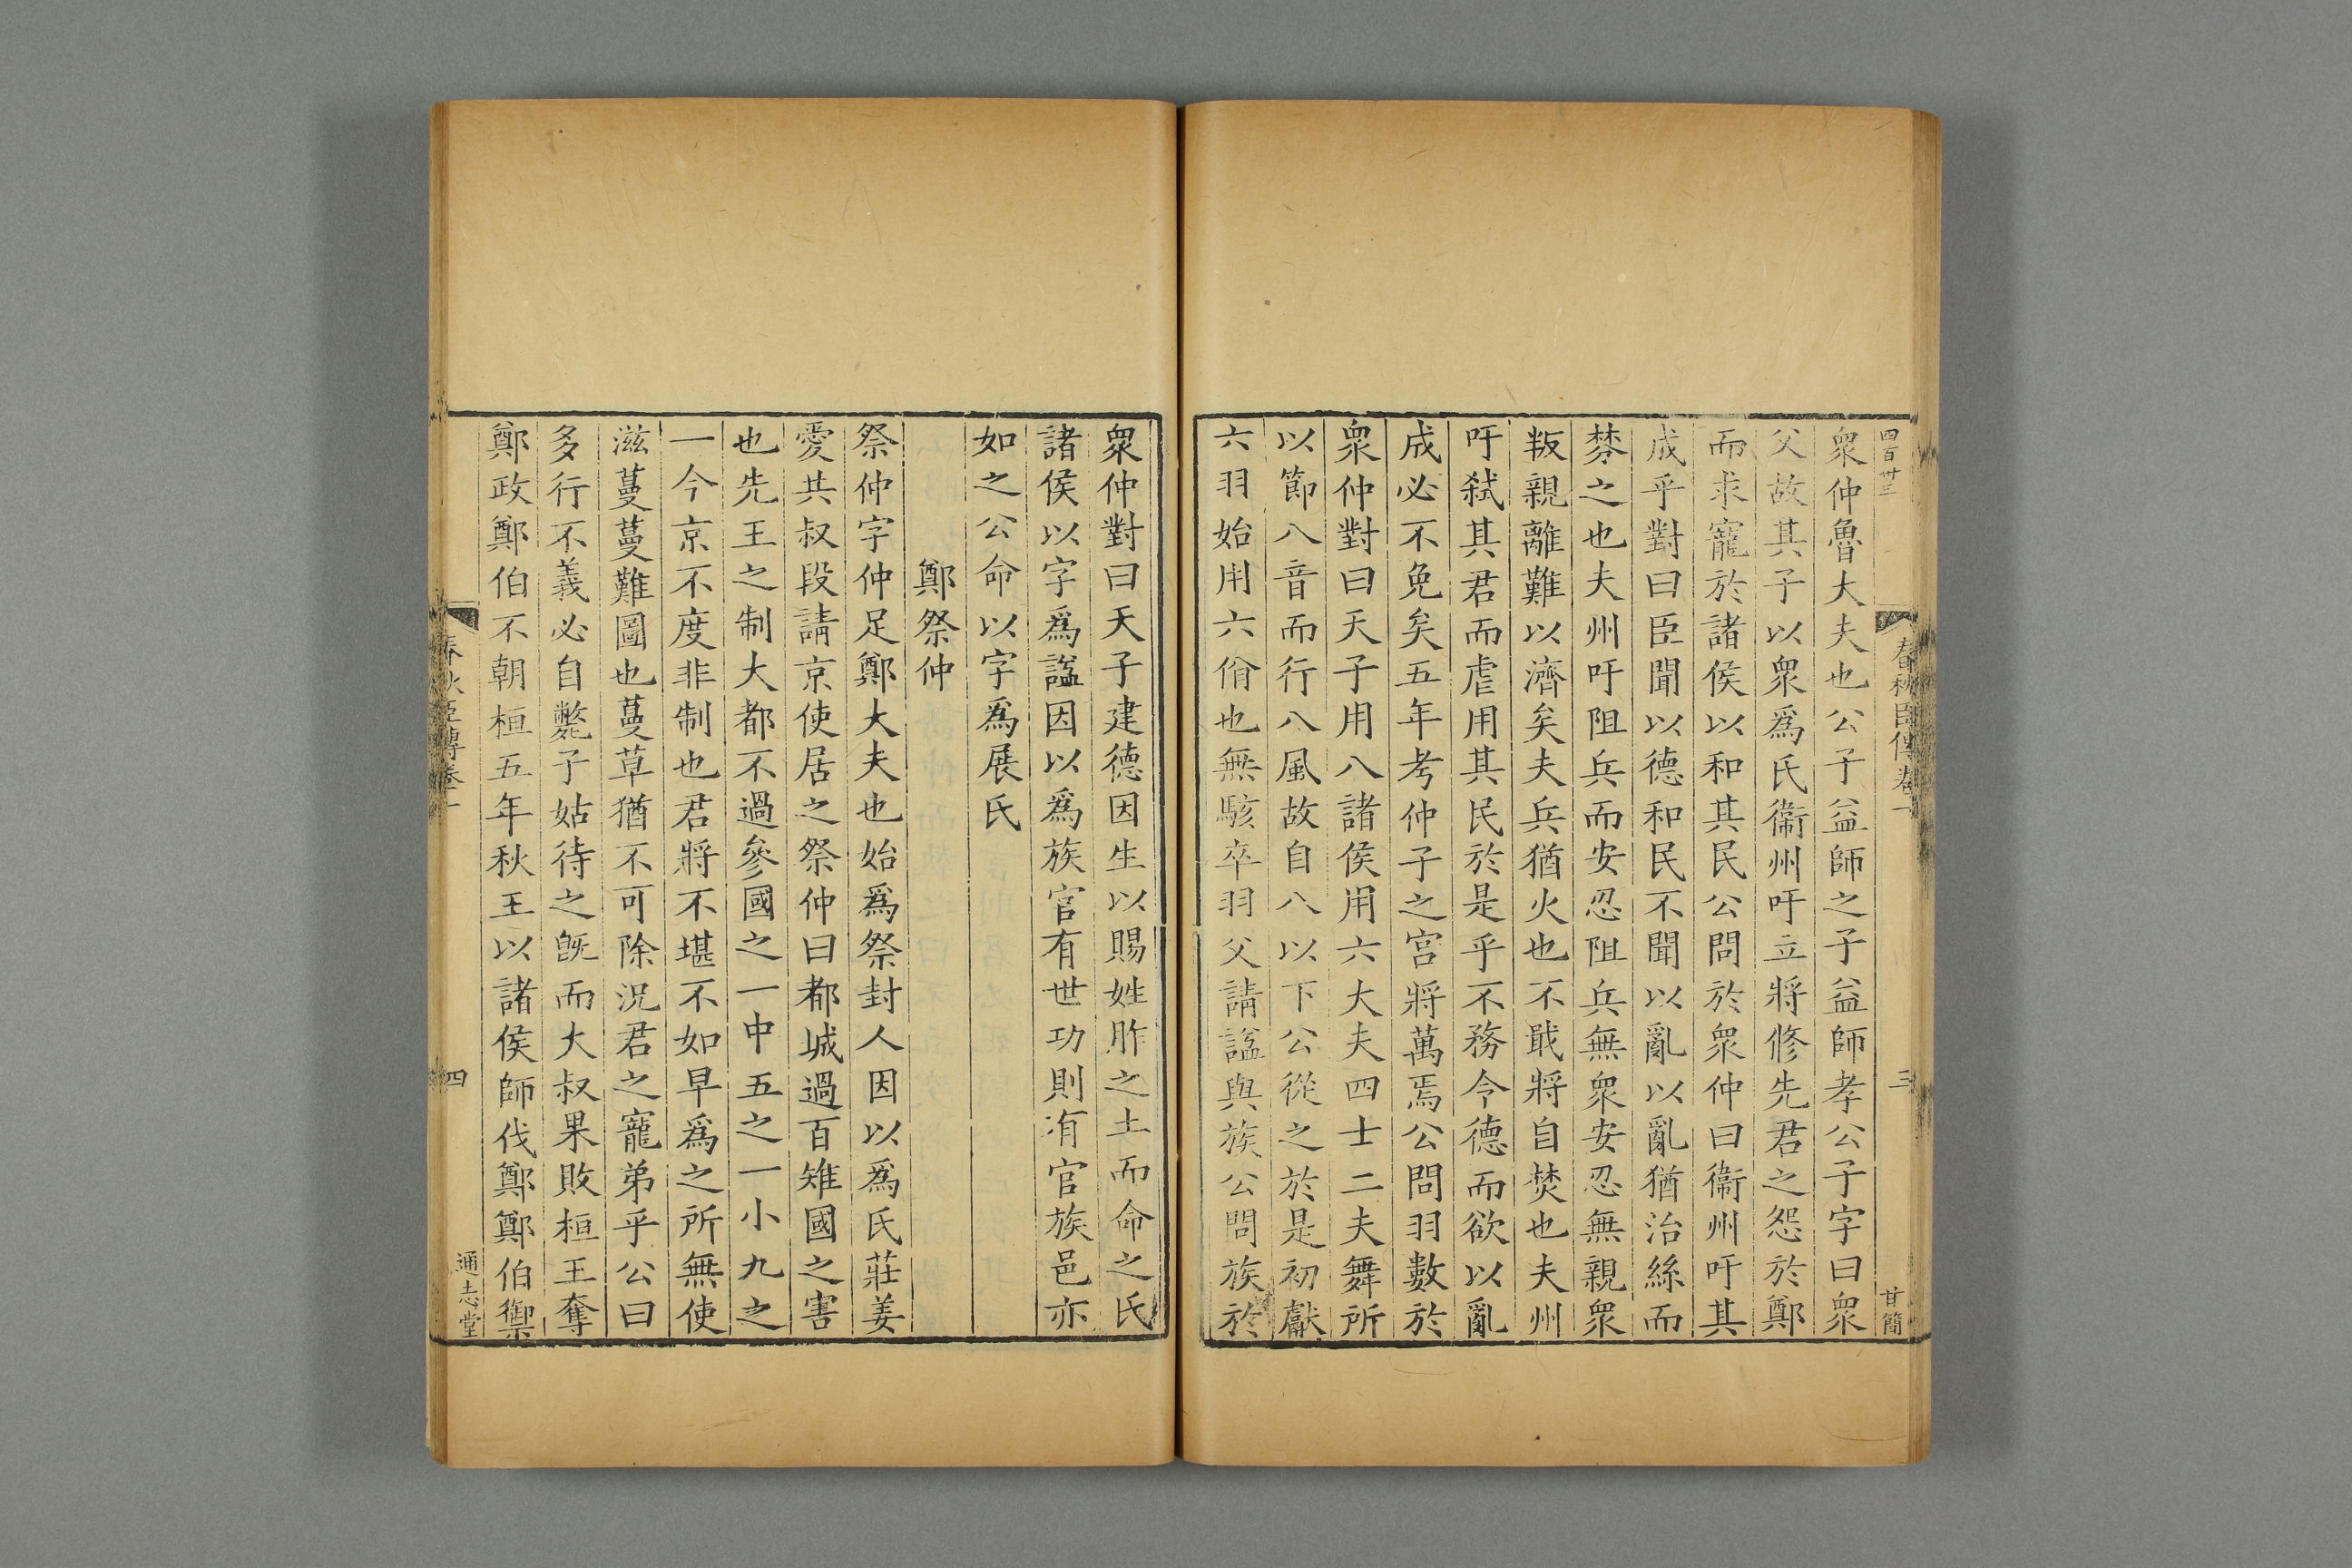 四百卅三
春秋臣傳卷一
三
甘簡
衆仲魯大夫也公子益師之子益師孝公子字曰衆
父故其子以衆爲氏衞州吁立將修先君之怨於鄭
而求寵於諸侯以和其民公問於衆仲曰衞州吁其
成乎對曰臣聞以德和民不聞以亂以亂猶治絲而
棼之也夫州吁阻兵而安忍阻兵無衆安忍無親衆
叛親離難以濟矣夫兵猶火也不戢將自焚也夫州
吁弑其君而虐用其民於是乎不務令德而欲以亂
成必不免矣五年考仲子之宮將萬焉公問羽數於
衆仲對曰天子用八諸侯用六大夫四士二夫舞所
以節八音而行八風故自八以下公從之於是初獻
六羽始用六佾也無駭卒羽父請諡與族公問族於
衆仲對曰天子建德因生以賜姓胙之土而命之氏
諸侯以字爲諡因以爲族官有世功則有官族邑亦
如之公命以字爲展氏
鄭祭仲
祭仲字仲足鄭大夫也始爲祭封人因以爲氏莊姜
愛共叔段請京使居之祭仲曰都城過百雉國之害
也先王之制大都不過參國之一中五之一小九之
一今京不度非制也君將不堪不如早爲之所無使
滋蔓蔓難圖也蔓草猶不可除況君之寵弟乎公曰
多行不義必自斃子姑待之旣而大叔果敗桓王奪
鄭政鄭伯不朝桓五年秋王以諸侯師伐鄭鄭伯禦
春秋臣傳卷一
四
通志堂